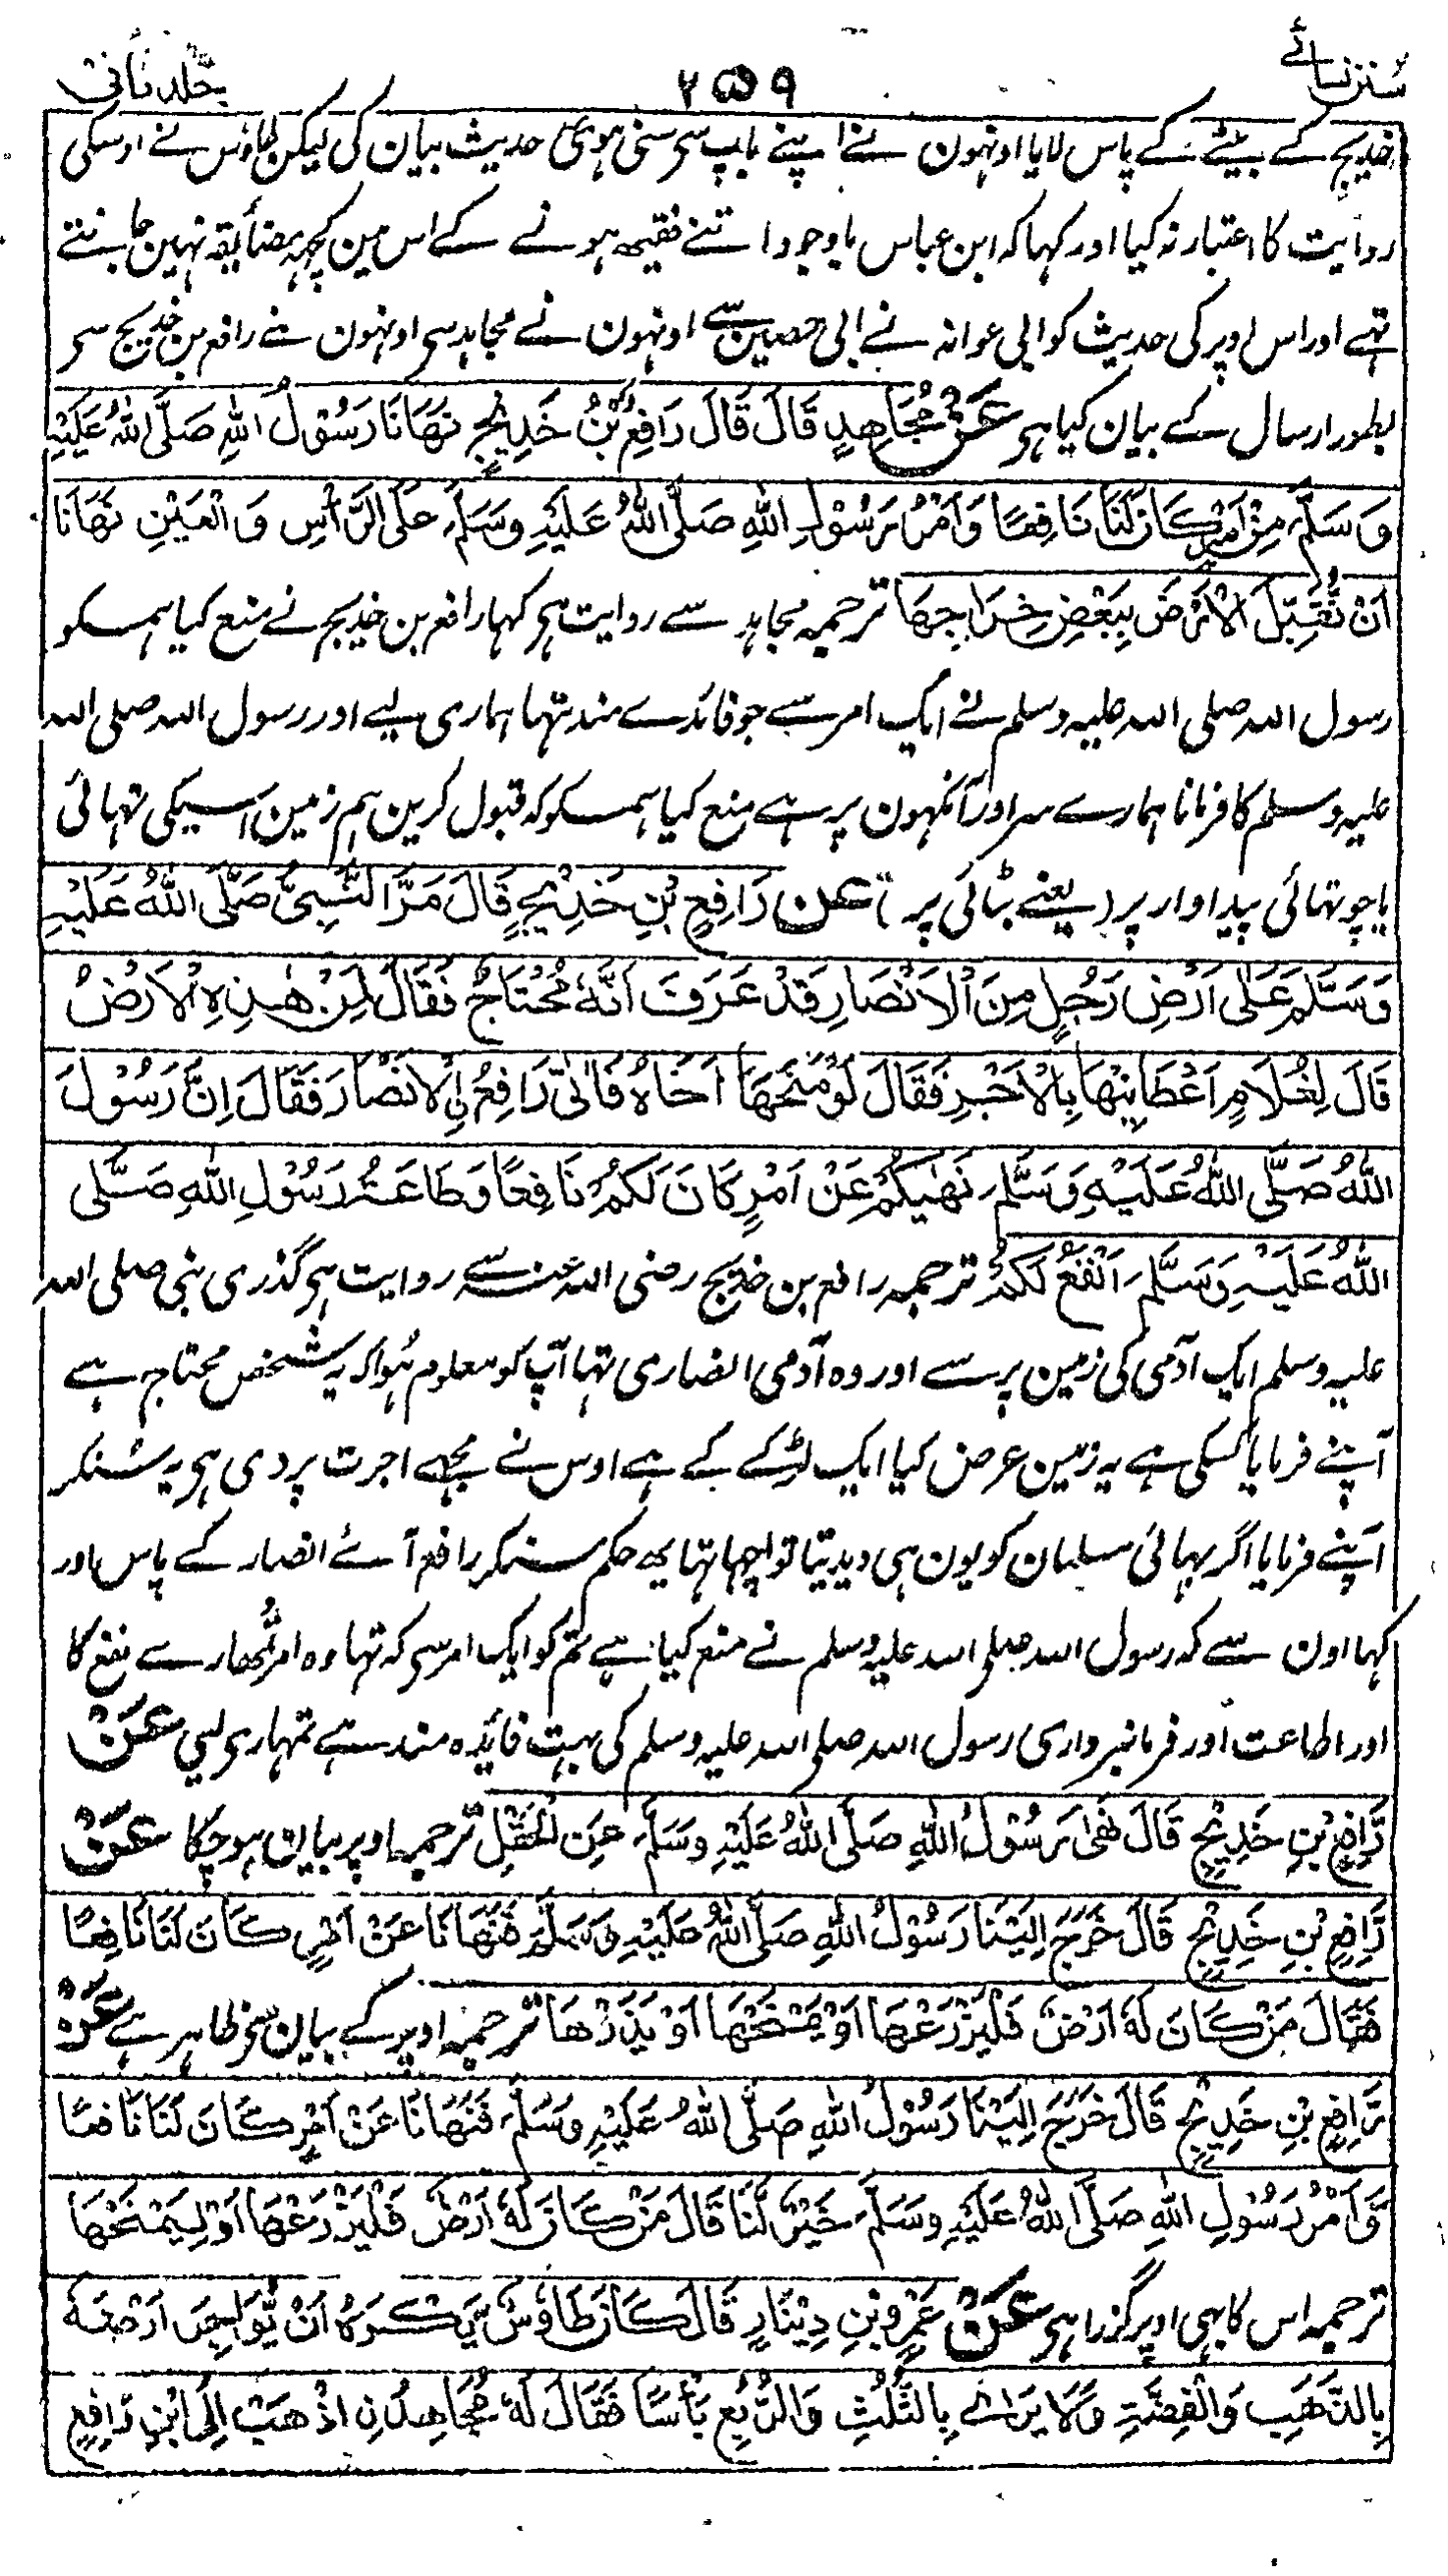 سنن نسائے ۲۵۹ جلد ثانی
خدیج کے بیٹے کے پاس لایا اونہون نے اپنے باپ سے سنی ہوئی حدیث بیان کی لیکن طاؤس نے اوسکی
روایت کا اعتبار نہ کیا اور کہا کہ ابن عباس باوجود اتنے فقیہ ہونے کے اس مین کچہہ مضائیقہ نہین جانتے
تہے اور اس اوپر کی حدیث کو ابی عوانہ نے ابی حصین سے اونہون نے مجاہد سے اونہون نے رافع بن خدیج سے
بطور ارسال کے بیان کیا ہے عَنْ مُجَاهِدٍ قَالَ قَالَ رَافِعُ بْنُ خَدِيْجٍ نَهَانَا رَسُوْلُ اللهِ صَلَّى اللهُ عَلَيْهِ
وَسَلَّمَ مِنْ اَمْرٍ كَانَ لَنَا نَافِعًا وَاَمْرُ رَسُوْلِ اللهِ صَلَّى اللهُ عَلَيْهِ وَسَلَّمَ عَلَى الرَّأْسِ وَالْعَيْنِ نَهَانَا
اَنْ نَّقْبَلَ الْاَرْضَ بِبَعْضِ خِرَاجِهَا ترجمہ مجاہد سے روایت ہے کہا رافع بن خدیج نے منع کیا ہمسکو
رسول اللہ صلی اللہ علیہ وسلم نے ایک امر سے جو فائدے مند تہا ہماری لیے اور رسول اللہ صلی اللہ
علیہ وسلم کا فرمانا ہمارے سر اور آنکہون پر ہے منع کیا ہمسکو کہ قبول کرین ہم زمین اسیکی تہائی
یا چوتہائی پیداوار پر (یعنے بٹائی پر) عَن رَافِعِ بْنِ خَدِيْجٍ قَالَ مَرَّ النَّبِيُّ صَلَّى اللهُ عَلَيْهِ
وَسَلَّمَ عَلٰى اَرْضِ رَجُلٍ مِنَ الْاَنْصَارِ قَدْ عَرَفَ اَنَّهٗ مُحْتَاجٌ فَقَالَ لِمَنْ هٰذِهِ الْاَرْضُ
قَالَ لِغُلَامٍ اَعْطَانِيْهَا بِالْاَجْرِ فَقَالَ لَوْ مَنَحَهَا اَخَاهُ فَاَتٰى رَافِعُ نِ الْاَنْصَارَ فَقَالَ اِنَّ رَسُوْلَ
اللهُ صَلَّى اللهُ عَلَيْهِ وَسَلَّمَ نَهٰيكُمْ عَنْ اَمْرٍ كَانَ لَكُمْ نَافِعًا وَطَاعَةُ رَسُوْلِ اللهِ صَلَّى
اللهُ عَلَيْهِ وَسَلَّمَ اَنْفَعُ لَكُمْ ترجمہ رافع بن خدیج رضی اللہ عنہ سے روایت ہے گذری نبی صلی اللہ
علیہ وسلم ایک آدمی کی زمین پر سے اور وہ آدمی انصاری تہا آپ کو معلوم ہوا کہ یہ شخص محتاج ہے
آپنے فرمایا کسکی ہے یہ زمین عرض کیا ایک لڑکے کے ہے اوس نے مجہے اجرت پر دی ہے یہ سنکر
آپنے فرمایا اگر بہائی مسلمان کو یون ہی دیدیتا تو اچہا تہا یہ حکم سنکر رافع آئے انصار کے پاس اور
کہا اون سے کہ رسول اللہ صلی اللہ علیہ وسلم نے منع کیا ہے تم کو ایک امر سے کہ تہا وہ امر تمہارے نفع کا
اور اطاعت اور فرمانبرداری رسول اللہ صلی اللہ علیہ وسلم کی بہت فائدہ مند ہے تمہاری لیی عَنْ
رَافِعِ بْنِ خَدِيْجٍ قَالَ نَهٰى رَسُوْلُ اللهِ صَلَّى اللهُ عَلَيْهِ وَسَلَّمَ عَنِ الْحَقْلِ ترجمہ اوپر بیان ہو چکا عَنْ
رَافِعِ بْنِ خَدِيْجٍ قَالَ خَرَجَ اِلَيْنَا رَسُوْلُ اللهِ صَلَّى اللهُ عَلَيْهِ وَسَلَّمَ فَنَهَانَا عَنْ اَمْرٍ كَانَ لَنَا نَافِعًا
فَقَالَ مَنْ كَانَ لَهٗ اَرْضٌ فَلْيَزْرَعْهَا اَوْ يَمْنَحْهَا اَوْ يَذَرْهَا ترجمہ اوپر کے بیان سے ظاہر ہے عَنْ
رَافِعِ بْنِ خَدِيْجٍ قَالَ خَرَجَ اِلَيْنَا رَسُوْلُ اللهِ صَلَّى اللهُ عَلَيْهِ وَسَلَّمَ فَنَهَانَا عَنْ اَمْرٍ كَانَ لَنَا نَافِعًا
وَاَمْرُ رَسُوْلِ اللهِ صَلَّى اللهُ عَلَيْهِ وَسَلَّمَ خَيْرٌ لَّنَا قَالَ مَنْ كَانَ لَهٗ اَرْضٌ فَلْيَزْرَعْهَا اَوْ لِيَمْنَحْهَا
ترجمہ اس کا بہی اوپر گزرا ہے عَنْ عَمْرِو بْنِ دِيْنَارٍ قَالَ كَانَ طَاوٗسٌ يَّكْرَهُ اَنْ يُّوَاجِرَ اَرْضَهٗ
بِالذَّهَبِ وَالْفِضَّةِ وَلَا يَرٰى بِالثُّلُثِ وَالرُّبُعِ بَأْسًا فَقَالَ لَهٗ مُجَاهِدُ نِ اذْهَبْ اِلَى ابْنِ رَافِعِ